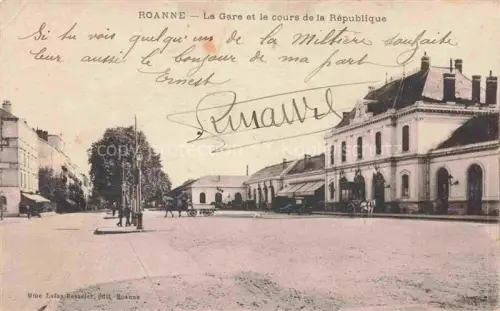 ROANNE — La Gare et le cours de la République
Si tu vois quelqu'un de la Miltière souhaite
leur aussi le bonjour de ma part
Ernest
Mme Lafay édit. Roanne